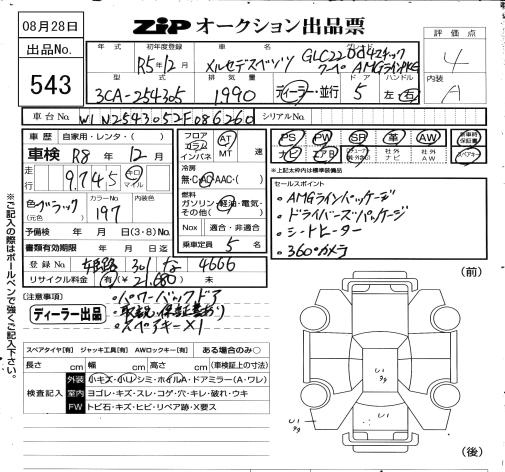 08月28日
ZIP オークション出品票
出品No.
543
年式
初年度登録 R5年12月
車名 メルセデスベンツ
グレード GLC220d4マチック
クーペ AMGラインPKG
評価点 4
内装 A
型式 3CA-254305
排気量 1,990
ディーラー・並行
ドア 5
ハンドル 左・右
車台No. W1N2543052F086260
シリアルNo.
車歴 自家用・レンタ・( )
車検 R8年12月
走行 9,745 キロ マイル
色 ブラック (元色)
カラーNo. 197
内装色
予備検 年 月 日(3・8)No.
書類有効期限 年 月 日迄
登録No. 姫路 301 な 4666
リサイクル料金 有(¥21,680) 未
フロア コラム インパネ
AT MT 速
冷房 無・C・AC・AAC・( )
燃料 ガソリン・軽油・電気・その他( )
Nox 適合・非適合
乗車定員 5名
PS PW SR 革 AW 新車時保証書
ナビ エアB 社外ナビ 社外AW スペアキー
*上記太枠内は標準装備品
セールスポイント
・AMGラインパッケージ
・ドライバーズパッケージ
・シートヒーター
・360°カメラ
(注意事項)
ディーラー出品
・パワーバックドア
・取説、保証書あり
・スペアキー×1
※ご記入の際はボールペンで強くご記入下さい。
スペアタイヤ[有] ジャッキ工具[有] AWロックキー[有] ある場合のみ○
長さ cm 幅 cm 高さ cm (車検証上の寸法)
検査記入
外装 小キズ・小U シミ・ホイルA・ドアミラー(A・ワレ)
室内 ヨゴレ・キズ・スレ・コゲ・穴・キレ・破れ・ウキ
FW トビ石・キズ・ヒビ・リペア跡・X要ス
(前)
(後)